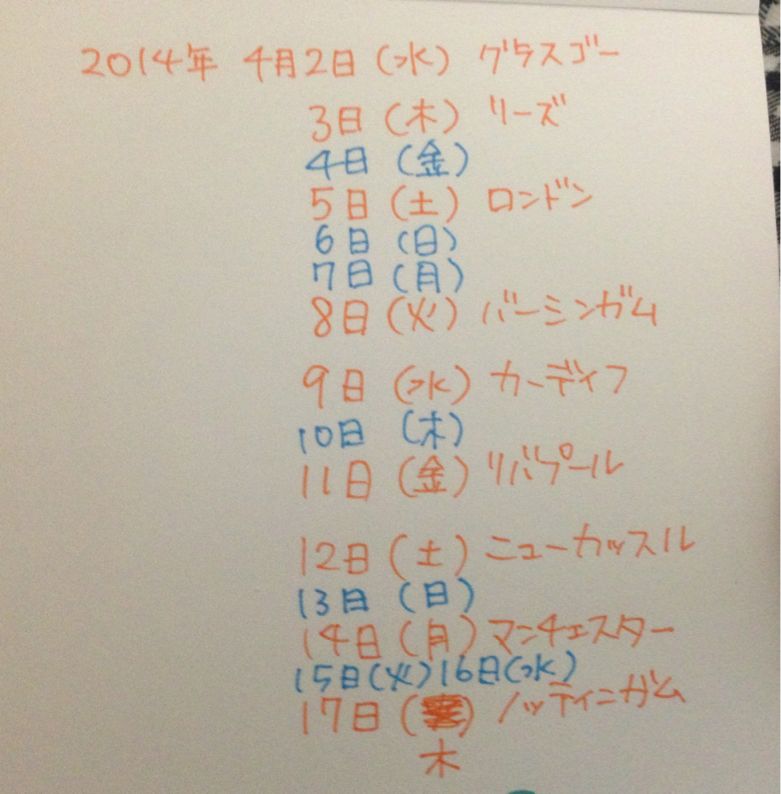 2014年 4月2日(水) グラスゴー
3日(木) リーズ
4日(金)
5日(土) ロンドン
6日(日)
7日(月)
8日(火) バーミンガム
9日(水) カーディフ
10日(木)
11日(金) リバプール
12日(土) ニューカッスル
13日(日)
14日(月) マンチェスター
15日(火) 16日(水)
17日( ) ノッティンガム
木